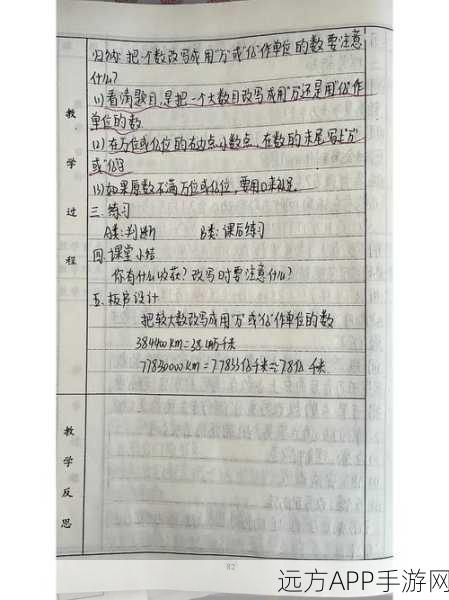 归纳：把一个数改写成用"万"或"亿"作单位的数要注意
什么？
(1)看清题目,是把一个大数目改写成用"万"还是用"亿"作
单位的数.
(2)在万位或亿位的右边点小数点,在数的末尾写上"万"
或"亿"字
(3)如果原数不满万位或亿位,要用0来补足。
三.练习
A类:判断 B类:课后练习
四.课堂小结
你有什么收获？改写时要注意什么？
五.板书设计
把较大数改写成用"万"或"亿"作单位的数
384400km=38.44万千米
千米
教学过程
教学反思
82
远方APP手游网